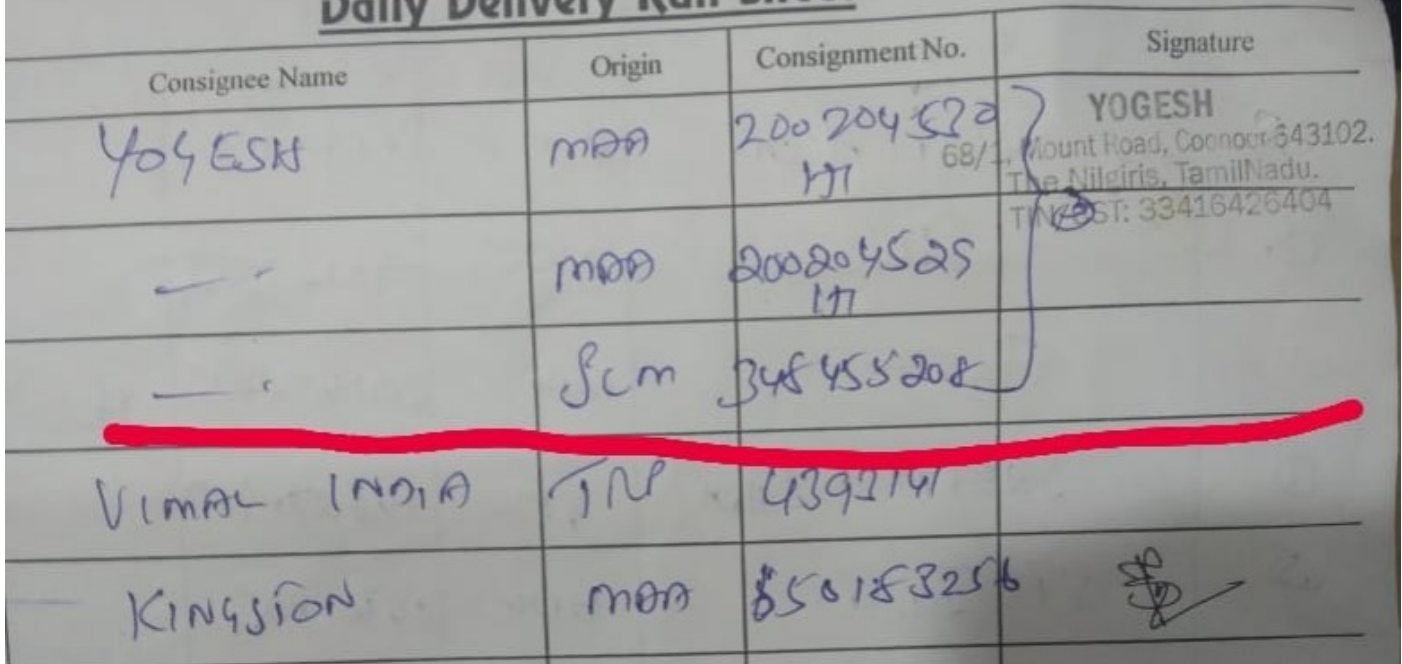 Daily Delivery Run Sheet
Consignee Name Origin Consignment No. Signature
YOGESH MAA 200204530
YOGESH
68/1, Mount Road, Coonoor-643102.
The Nilgiris, TamilNadu.
TIN GST: 33416426404
MAA 200204525
SLM 348455208
VIMAL INDIA TN 4393141
KINGSTON MAA 850183256